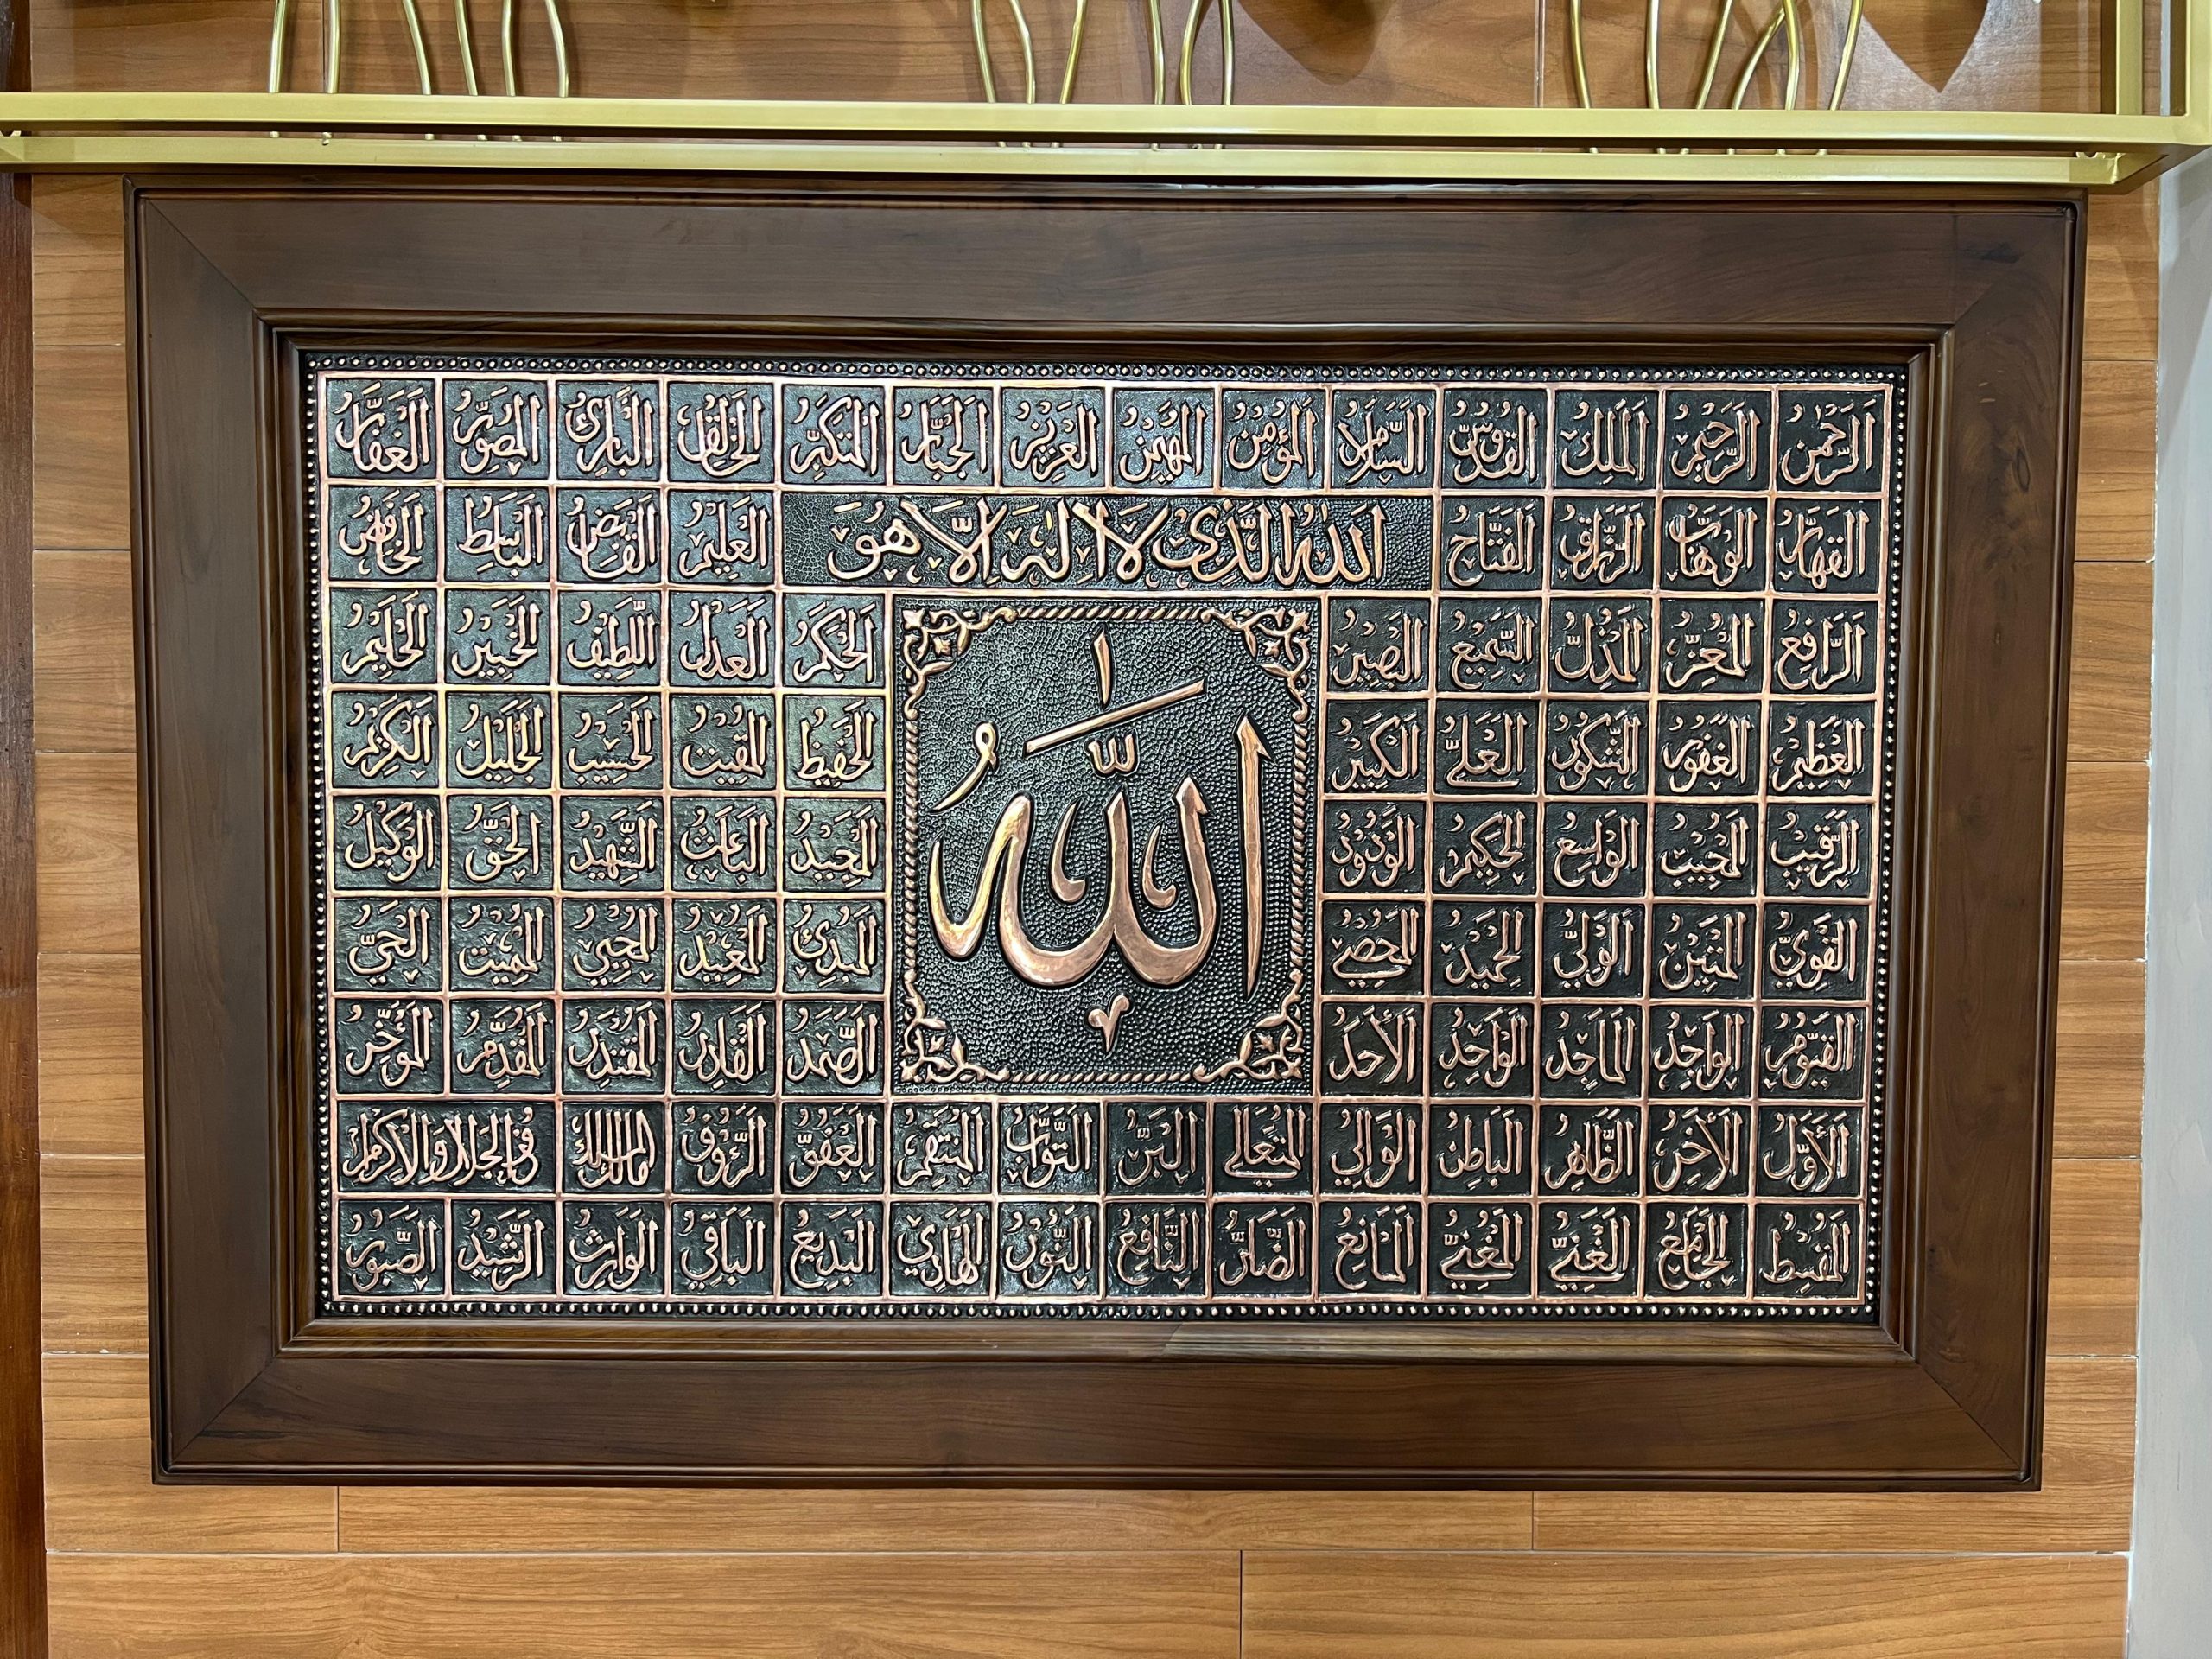 الرَّحْمٰنُ الرَّحِيْمُ الْمَلِكُ الْقُدُّوْسُ السَّلَامُ الْمُؤْمِنُ الْمُهَيْمِنُ الْعَزِيْزُ الْجَبَّارُ الْمُتَكَبِّرُ الْخَالِقُ الْبَارِئُ الْمُصَوِّرُ الْغَفَّارُ
الْقَهَّارُ الْوَهَّابُ الرَّزَّاقُ الْفَتَّاحُ اللهُ الَّذِيْ لَا اِلٰهَ اِلَّا هُوَ الْعَلِيْمُ الْقَابِضُ الْبَاسِطُ الْخَافِضُ
الرَّافِعُ الْمُعِزُّ الْمُذِلُّ السَّمِيْعُ الْبَصِيْرُ الْحَكَمُ الْعَدْلُ اللَّطِيْفُ الْخَبِيْرُ الْحَلِيْمُ
الْعَظِيْمُ الْغَفُوْرُ الشَّكُوْرُ الْعَلِيُّ الْكَبِيْرُ الْحَفِيْظُ الْمُقِيْتُ الْحَسِيْبُ الْجَلِيْلُ الْكَرِيْمُ
الرَّقِيْبُ الْمُجِيْبُ الْوَاسِعُ الْحَكِيْمُ الْوَدُوْدُ الْمَجِيْدُ الْبَاعِثُ الشَّهِيْدُ الْحَقُّ الْوَكِيْلُ
الْقَوِيُّ الْمَتِيْنُ الْوَلِيُّ الْحَمِيْدُ الْمُحْصِيْ الْمُبْدِئُ الْمُعِيْدُ الْمُحْيِيْ الْمُمِيْتُ الْحَيُّ
الْقَيُّوْمُ الْوَاجِدُ الْمَاجِدُ الْوَاحِدُ الْأَحَدُ الصَّمَدُ الْقَادِرُ الْمُقْتَدِرُ الْمُقَدِّمُ الْمُؤَخِّرُ
اللهُ
الْأَوَّلُ الْأَخِرُ الظَّاهِرُ الْبَاطِنُ الْوَالِيْ الْمُتَعَالِيْ الْبَرُّ التَّوَّابُ الْمُنْتَقِمُ الْعَفُوُّ الرَّؤُوْفُ مَالِكُ الْمُلْكِ ذُو الْجَلَالِ وَالْإِكْرَامِ
الْمُقْسِطُ الْجَامِعُ الْغَنِيُّ الْمُغْنِيُّ الْمَانِعُ الضَّارُّ النَّافِعُ النُّوْرُ الْهَادِيْ الْبَدِيْعُ الْبَاقِيْ الْوَارِثُ الرَّشِيْدُ الصَّبُوْرُ